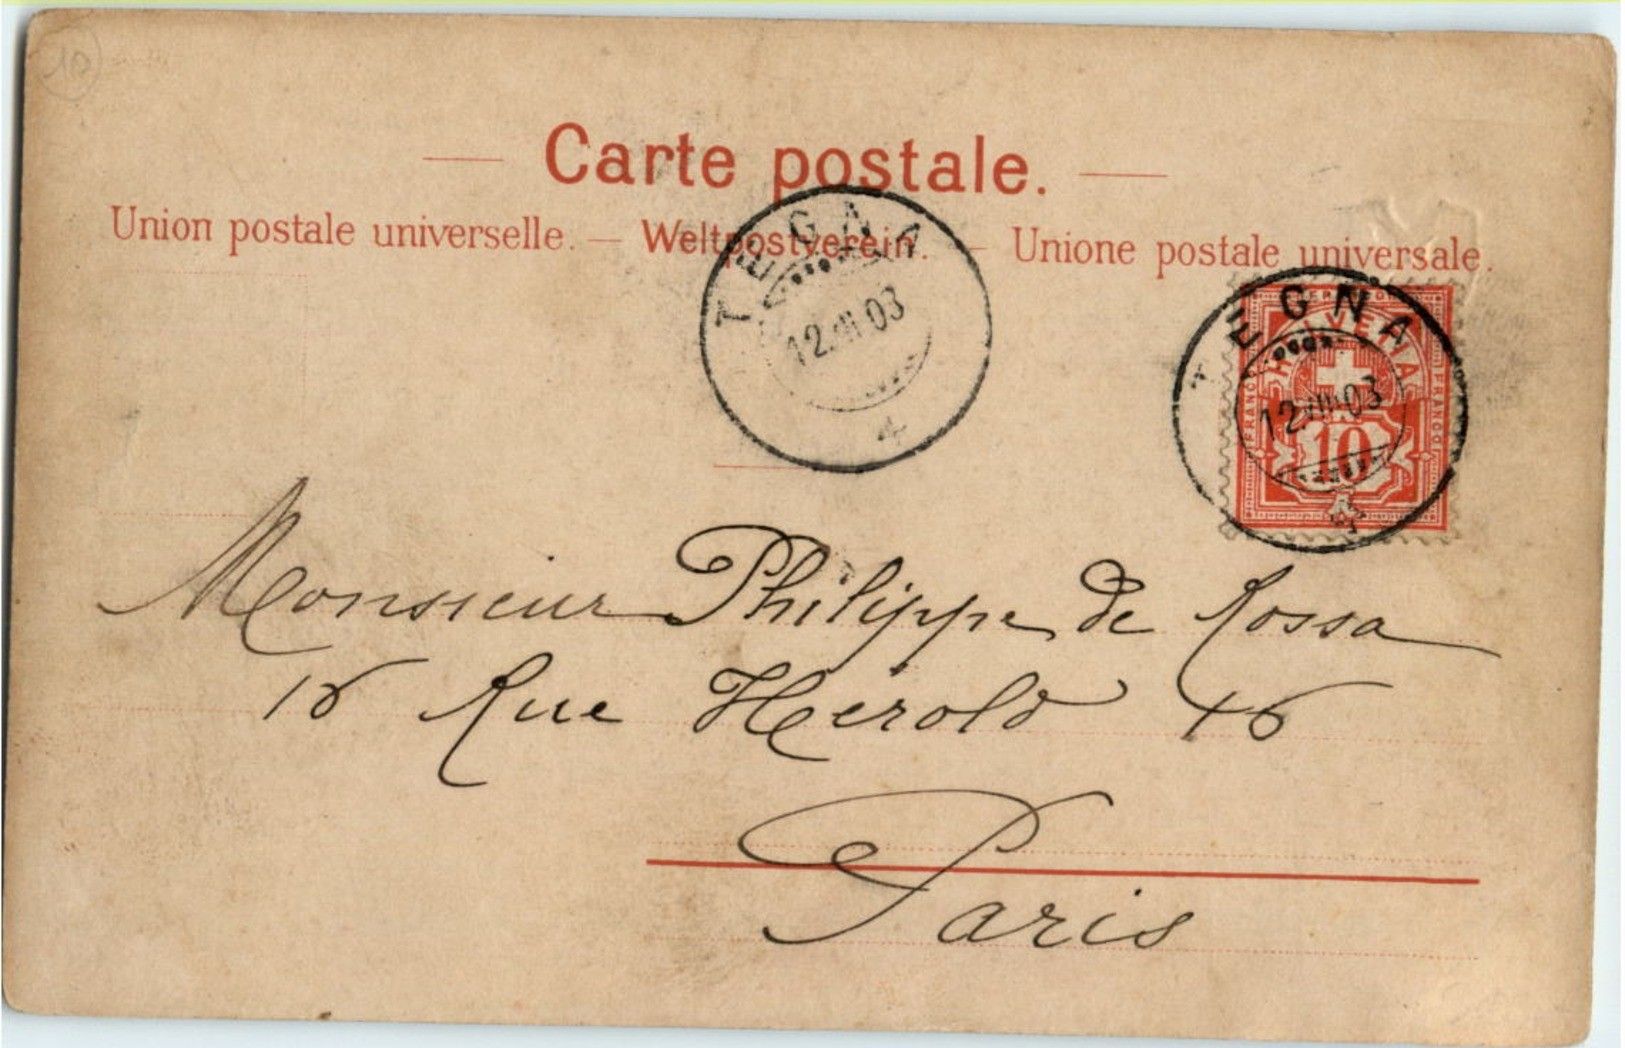 10
Carte postale.
Union postale universelle. — Weltpostverein. — Unione postale universale.
TEGNA
12.VIII.03
TEGNA
12.VIII.03
FRANCO
HELVETIA
FRANCO
10
Monsieur Philippe de Rossa
16 Rue Herold 16
Paris